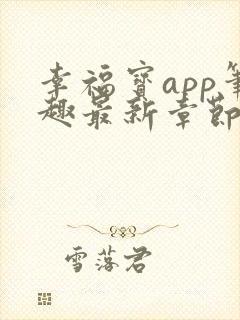 幸福宝app笔
趣最新章节
雪落君